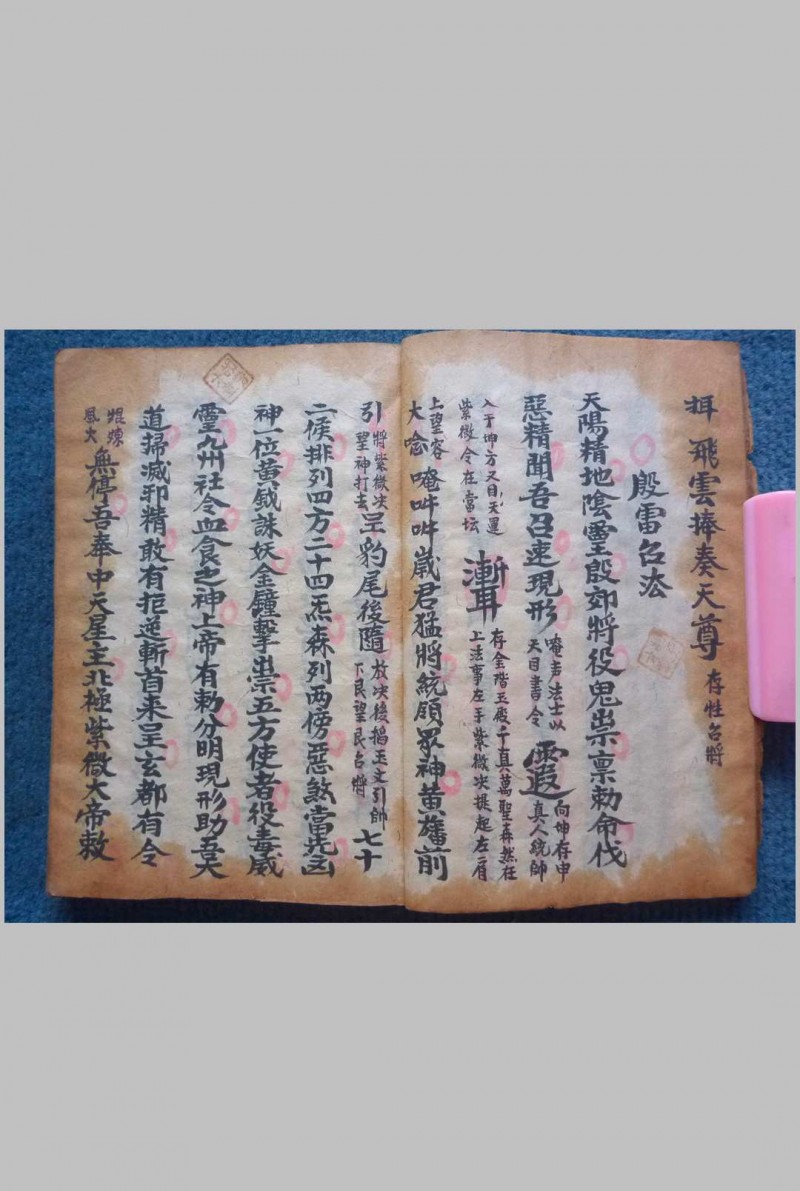 飛雲捧奏天尊 存性召將
殷雷召法
天陽精地陰靈殷郊將役鬼祟禀勅命伐
惡精聞吾召速現形 唵声法士以天目書令 霞 向坤存申真人統帥
入于坤方又目天運紫微令在當坛 漸耳 存金階玉殿千真萬聖森然在上法事左手紫微决提起左肩
上望容大唸 唵吽吽歲君猛將統領眾神黄旛前
引 將紫微决望神打去 呈豹尾後隨 放决後搯玉文引帥下艮望艮召將 七十
二候排列四方二十四炁森列两傍惡煞當先凶
神一位黄鉞誅妖金鐘擊祟五方使者役毒威
靈九州社令血食之神上帝有勅分明現形助吾天
道掃滅邪精敢有拒逆斬首来呈玄都有令
風火 無停吾奉中天星主北極紫微大帝敕